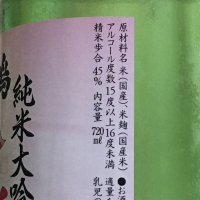 原材料名 米(国産)、米麹(国産米)
アルコール度数15度以上16度未満
精米歩合 45% 内容量 720ml
●お酒
適量を
乳児の
純米大吟